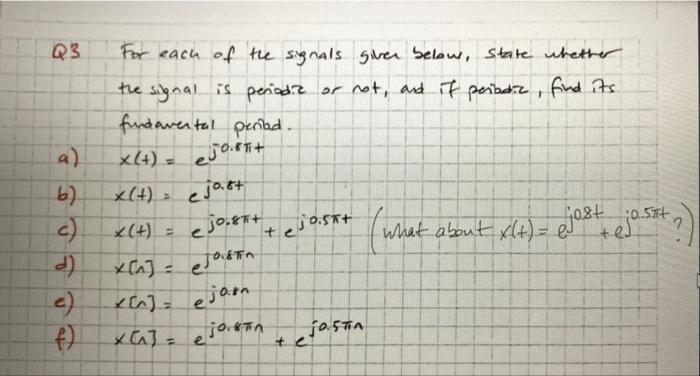 Q3 For each of the signals given below, state whether
the signal is periodic or not, and if periodic, find its
fundamental period.
a) x(t) = e^{j0.8πt}
b) x(t) = e^{j0.8t}
c) x(t) = e^{j0.8πt} + e^{j0.5πt} (what about x(t) = e^{j0.8t} + e^{j0.5πt}?)
d) x[n] = e^{j0.8πn}
e) x[n] = e^{j0.8n}
f) x[n] = e^{j0.8πn} + e^{j0.5πn}